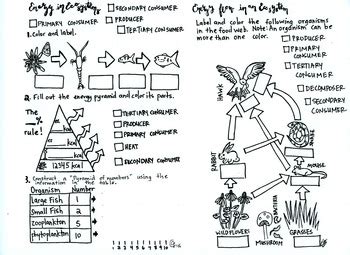 Energy in Ecosystems
SECONDARY CONSUMER
PRIMARY CONSUMER
PRODUCER
TERTIARY CONSUMER
1. Color and label.
2. Fill out the energy pyramid and color its parts.
The
__%
rule!
kcal
kcal
kcal
12345 kcal
TERTIARY CONSUMER
PRODUCER
PRIMARY CONSUMER
HEAT
SECONDARY CONSUMER
3. Construct a "Pyramid of numbers" using the
information in the table.
Organism Number
Large Fish 1
Small Fish 2
zooplankton 5
phytoplankton 10
1 2 3 4 5 6 7 8 9 10
Energy flow in an Ecosystem
Label and color the following organisms
in the food web. Note: An organism can be
more than one color.
PRODUCER
PRIMARY
CONSUMER
TERTIARY
CONSUMER
DECOMPOSER
SECONDARY
CONSUMER
HAWK
SNAKE
RABBIT
MOUSE
BACTERIA
WILDFLOWERS
MUSHROOM
GRASSES